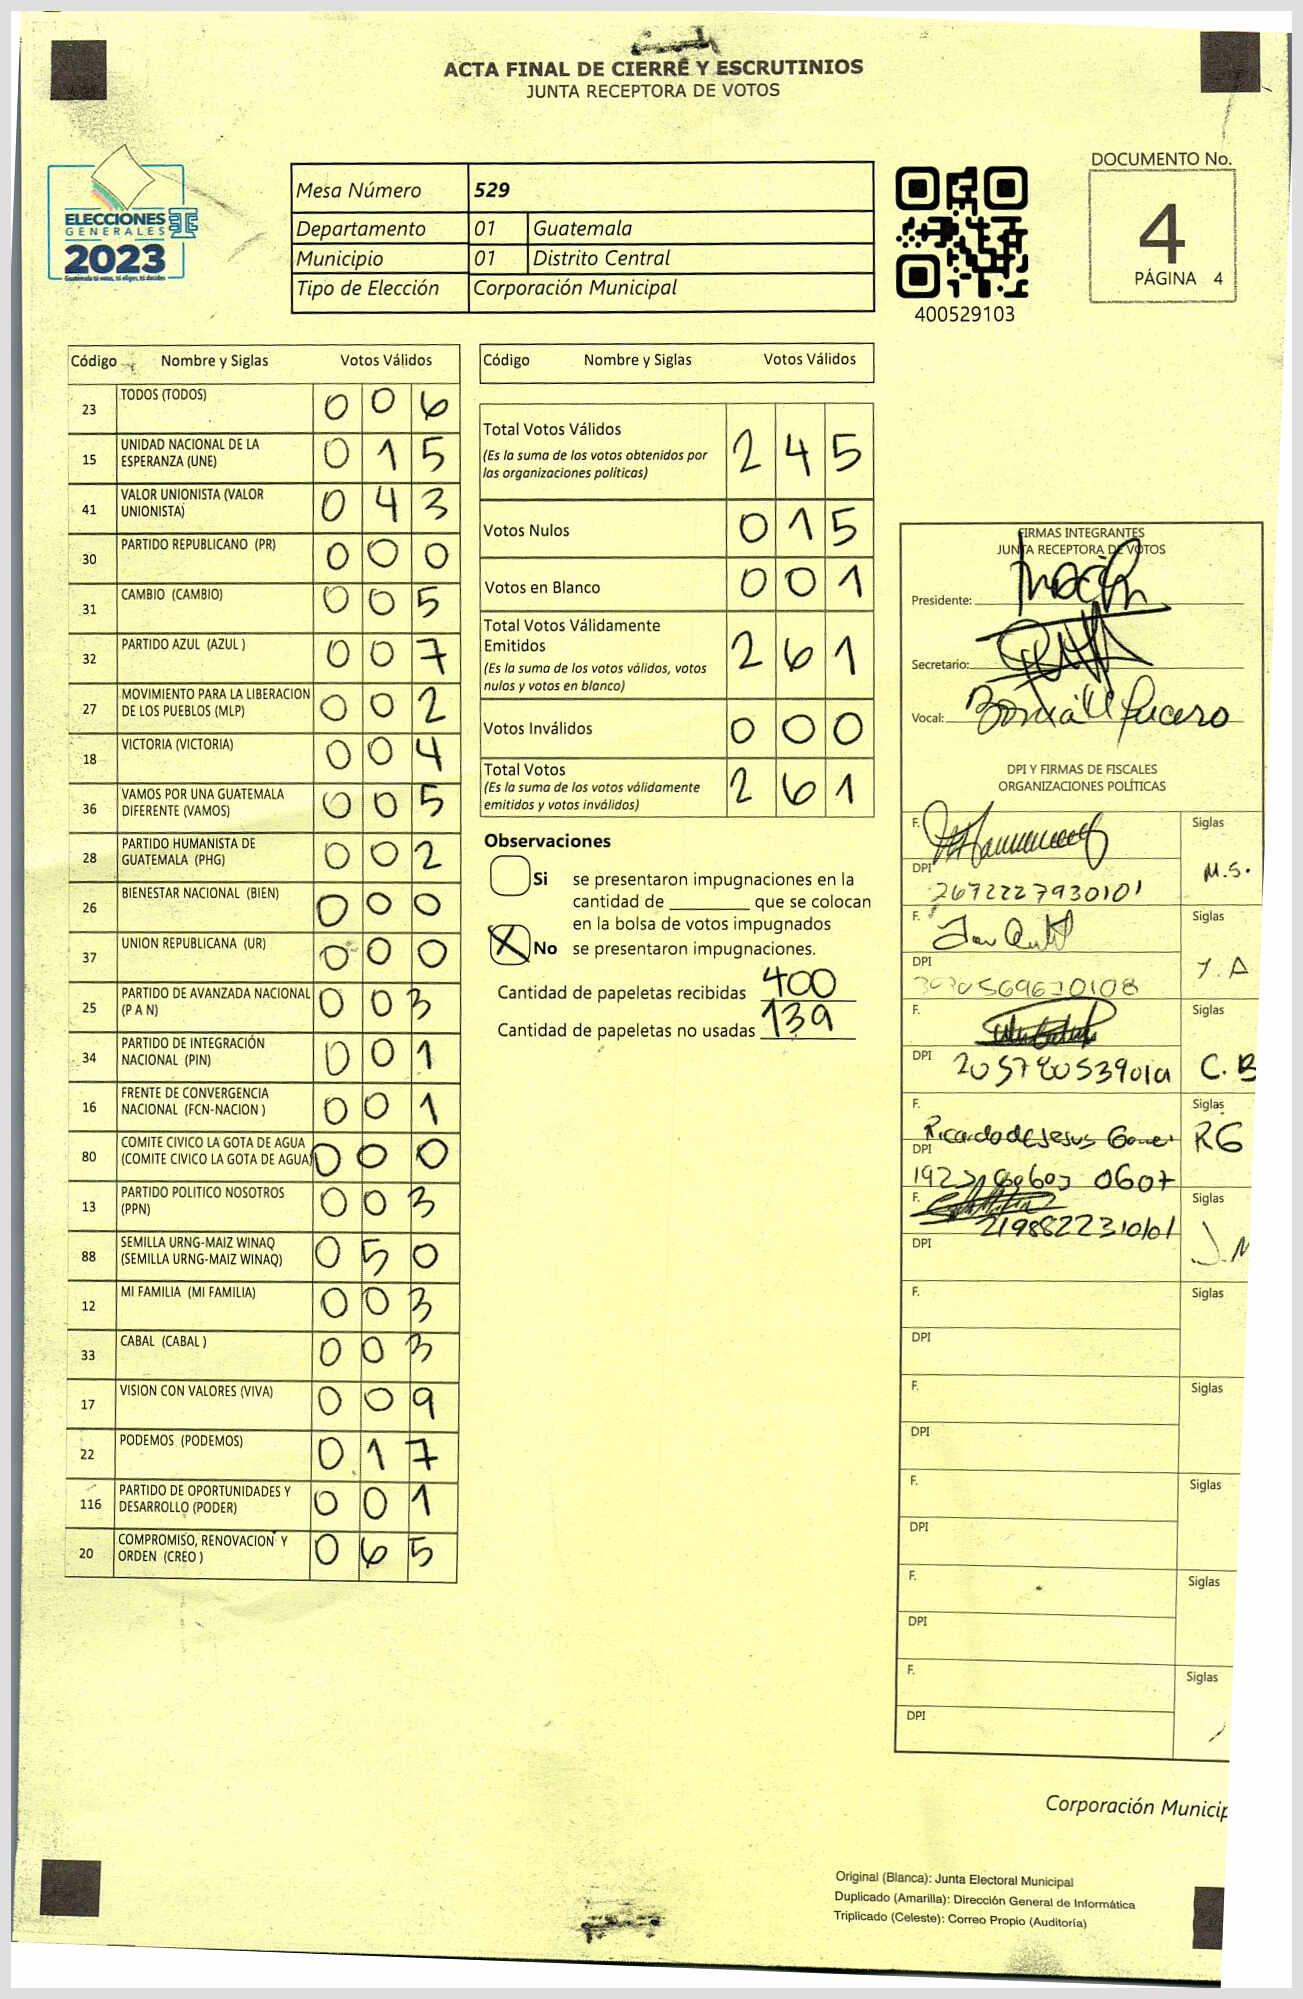 ACTA FINAL DE CIERRE Y ESCRUTINIOS
JUNTA RECEPTORA DE VOTOS
ELECCIONES
GENERALES
2023
Guatemala tú votas, tú eliges, tú decides
Mesa Número 529
Departamento 01 Guatemala
Municipio 01 Distrito Central
Tipo de Elección Corporación Municipal
400529103
DOCUMENTO No.
4
PÁGINA 4
Código Nombre y Siglas Votos Válidos
23 TODOS (TODOS) 0 0 6
15 UNIDAD NACIONAL DE LA ESPERANZA (UNE) 0 1 5
41 VALOR UNIONISTA (VALOR UNIONISTA) 0 4 3
30 PARTIDO REPUBLICANO (PR) 0 0 0
31 CAMBIO (CAMBIO) 0 0 5
32 PARTIDO AZUL (AZUL ) 0 0 7
27 MOVIMIENTO PARA LA LIBERACION DE LOS PUEBLOS (MLP) 0 0 2
18 VICTORIA (VICTORIA) 0 0 4
36 VAMOS POR UNA GUATEMALA DIFERENTE (VAMOS) 0 0 5
28 PARTIDO HUMANISTA DE GUATEMALA (PHG) 0 0 2
26 BIENESTAR NACIONAL (BIEN) 0 0 0
37 UNION REPUBLICANA (UR) 0 0 0
25 PARTIDO DE AVANZADA NACIONAL (P A N) 0 0 3
34 PARTIDO DE INTEGRACIÓN NACIONAL (PIN) 0 0 1
16 FRENTE DE CONVERGENCIA NACIONAL (FCN-NACION ) 0 0 1
80 COMITE CIVICO LA GOTA DE AGUA (COMITE CIVICO LA GOTA DE AGUA) 0 0 0
13 PARTIDO POLITICO NOSOTROS (PPN) 0 0 3
88 SEMILLA URNG-MAIZ WINAQ (SEMILLA URNG-MAIZ WINAQ) 0 5 0
12 MI FAMILIA (MI FAMILIA) 0 0 3
33 CABAL (CABAL ) 0 0 3
17 VISION CON VALORES (VIVA) 0 0 9
22 PODEMOS (PODEMOS) 0 1 7
116 PARTIDO DE OPORTUNIDADES Y DESARROLLO (PODER) 0 0 1
20 COMPROMISO, RENOVACION Y ORDEN (CREO ) 0 6 5
Código Nombre y Siglas Votos Válidos
Total Votos Válidos 2 4 5
(Es la suma de los votos obtenidos por
las organizaciones políticas)
Votos Nulos 0 1 5
Votos en Blanco 0 0 1
Total Votos Válidamente
Emitidos 2 6 1
(Es la suma de los votos válidos, votos
nulos y votos en blanco)
Votos Inválidos 0 0 0
Total Votos 2 6 1
(Es la suma de los votos válidamente
emitidos y votos inválidos)
Observaciones
Si se presentaron impugnaciones en la
cantidad de ________ que se colocan
en la bolsa de votos impugnados
X No se presentaron impugnaciones.
Cantidad de papeletas recibidas 400
Cantidad de papeletas no usadas 139
FIRMAS INTEGRANTES
JUNTA RECEPTORA DE VOTOS
Presidente:
Secretario:
Vocal: Lucero
DPI Y FIRMAS DE FISCALES
ORGANIZACIONES POLÍTICAS
F. Siglas
DPI 2672227930101 M.S.
F. Siglas
DPI
F. Siglas
DPI C.B
F. Ricardo de Jesus Siglas
DPI 0607 RG
F. 2198822310101 Siglas
DPI J.M
F. Siglas
DPI
F. Siglas
DPI
F. Siglas
DPI
F. Siglas
DPI
F. Siglas
DPI
Corporación Municip
Original (Blanca): Junta Electoral Municipal
Duplicado (Amarilla): Dirección General de Informática
Triplicado (Celeste): Correo Propio (Auditoría)